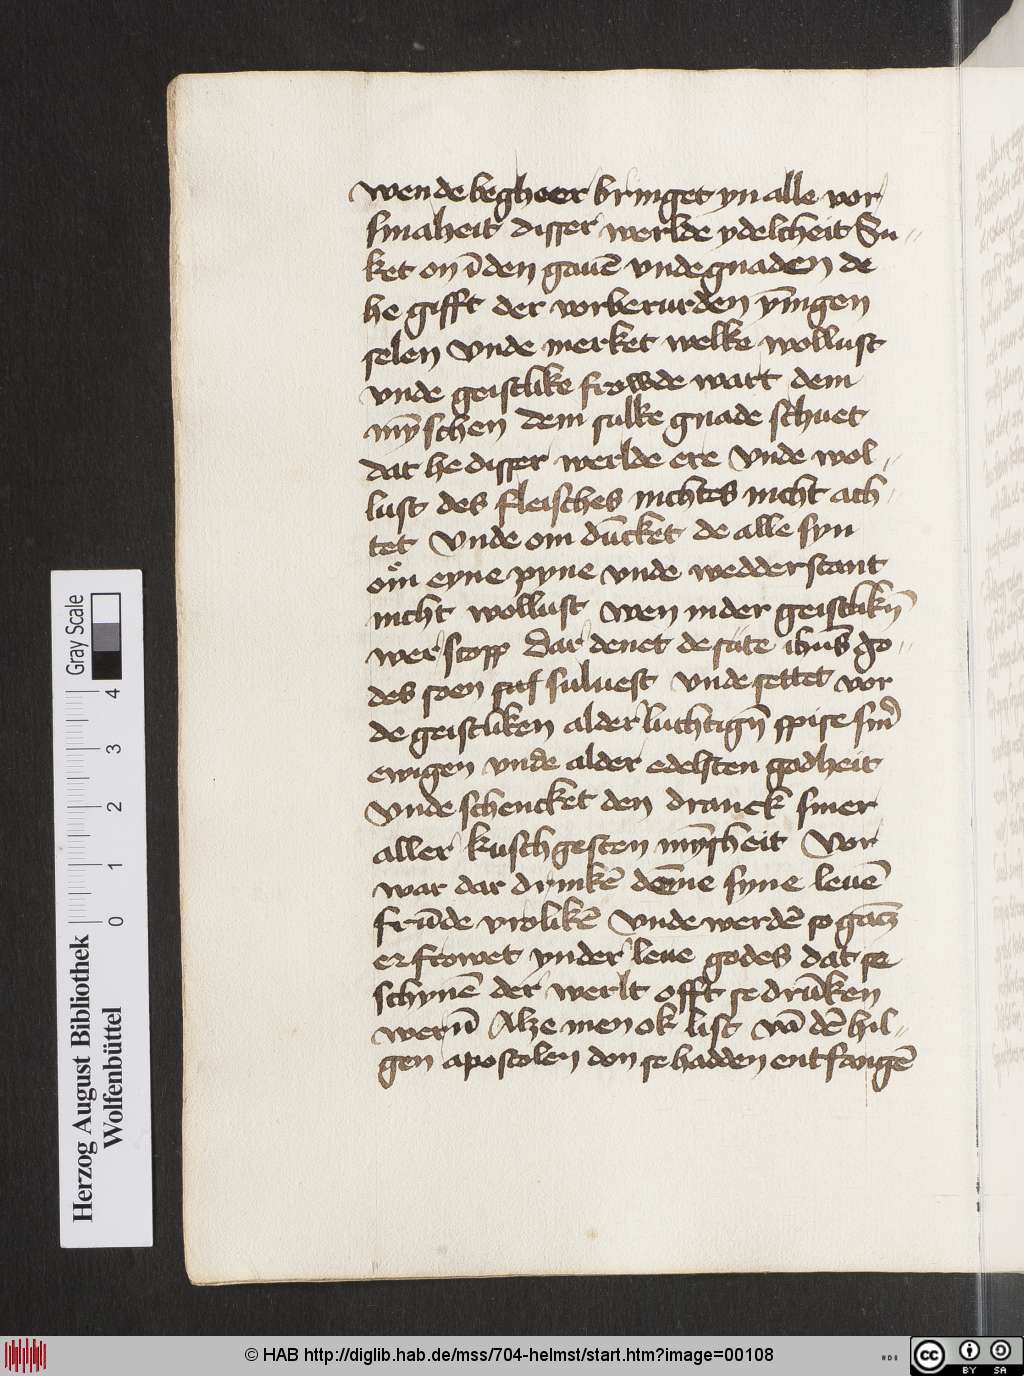 wen de begheer bringet yn alle vor
smaheit disser werlde ydelcheit Su„
ket on ī den gauē vnde gnaden de
he gifft der vorberurden ȳnigen
selen Vnde merket welke wollust
vnde geistlike frowde wart dem
mȳschen dem sulke gnade schuet
dat he disser werlde ere Vnde wol„
lust des fleisches nichtes nicht ach„
tet Vnde om dūcket de alle syn
om eyne pyne vnde wedderstant
nicht wollust wen in der geistlikn̄
werscopp Dar denet de sute ihūs go„
des soen self suluest vnde settet vor
de geistliken alder luchtign̄ spise sīner
ewigen vnde alder edelsten godheit
Vnde schencket den dranck siner
aller kuschgesten mȳscheit Vor
war dar drinkē deme syne leuē
frūde vrolikē Vnde werdē so gantz
erfrowet yn der leue godes dat se
schynē der werlt offt se drūken
werū Alze men ok list vā dē hil„
gen apostolen don se hadden entfangē
Herzog August Bibliothek
Wolfenbüttel
0 1 2 3 4
Gray Scale
© HAB http://diglib.hab.de/mss/704-helmst/start.htm?image=00108
cc BY SA